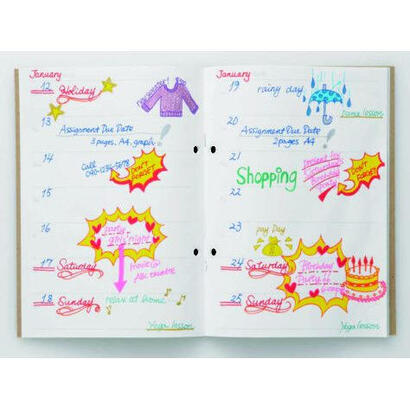 January
12 Holiday
13
Assignment Due Date
3 pages, A4, graph
14
Call
040-1234-5678
DON'T
FORGET!
15
16
Party
girls' night
17 Saturday
movie @
ABC theatre
18 Sunday
relax at home
Yoga lesson
January
19 rainy day
Dance lesson
20
Assignment Due Date
2 pages, A4
21
22
Shopping
DON'T
FORGET!
23 Pay Day
24 Saturday
Birthday
Party
25 Sunday
Yoga lesson